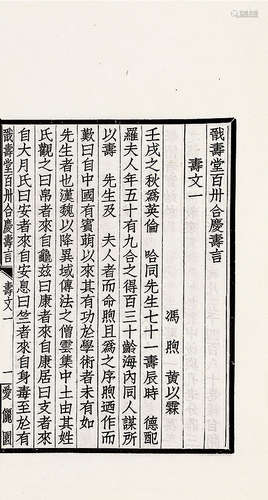 戩壽堂百卌合慶壽言
壽文一
馮煦 黃以霖
壬戌之秋為英倫 哈同先生七十一壽辰時 德配
羅夫人年五十有九合之得百三十齡海內同人謀所
以壽 先生及 夫人者而命煦且為之序煦迺作而
歎曰自中國有賓萌以來其有功於學術者未有如
先生者也漢魏以降異域傳法之僧雲集中土由其姓
氏觀之曰帛者來自龜茲曰康者來自康居曰支者來
自大月氏曰安者來自安息曰竺者來自身毒至於有
戩壽堂百卌合慶壽言
壽文一
一
愛儷園